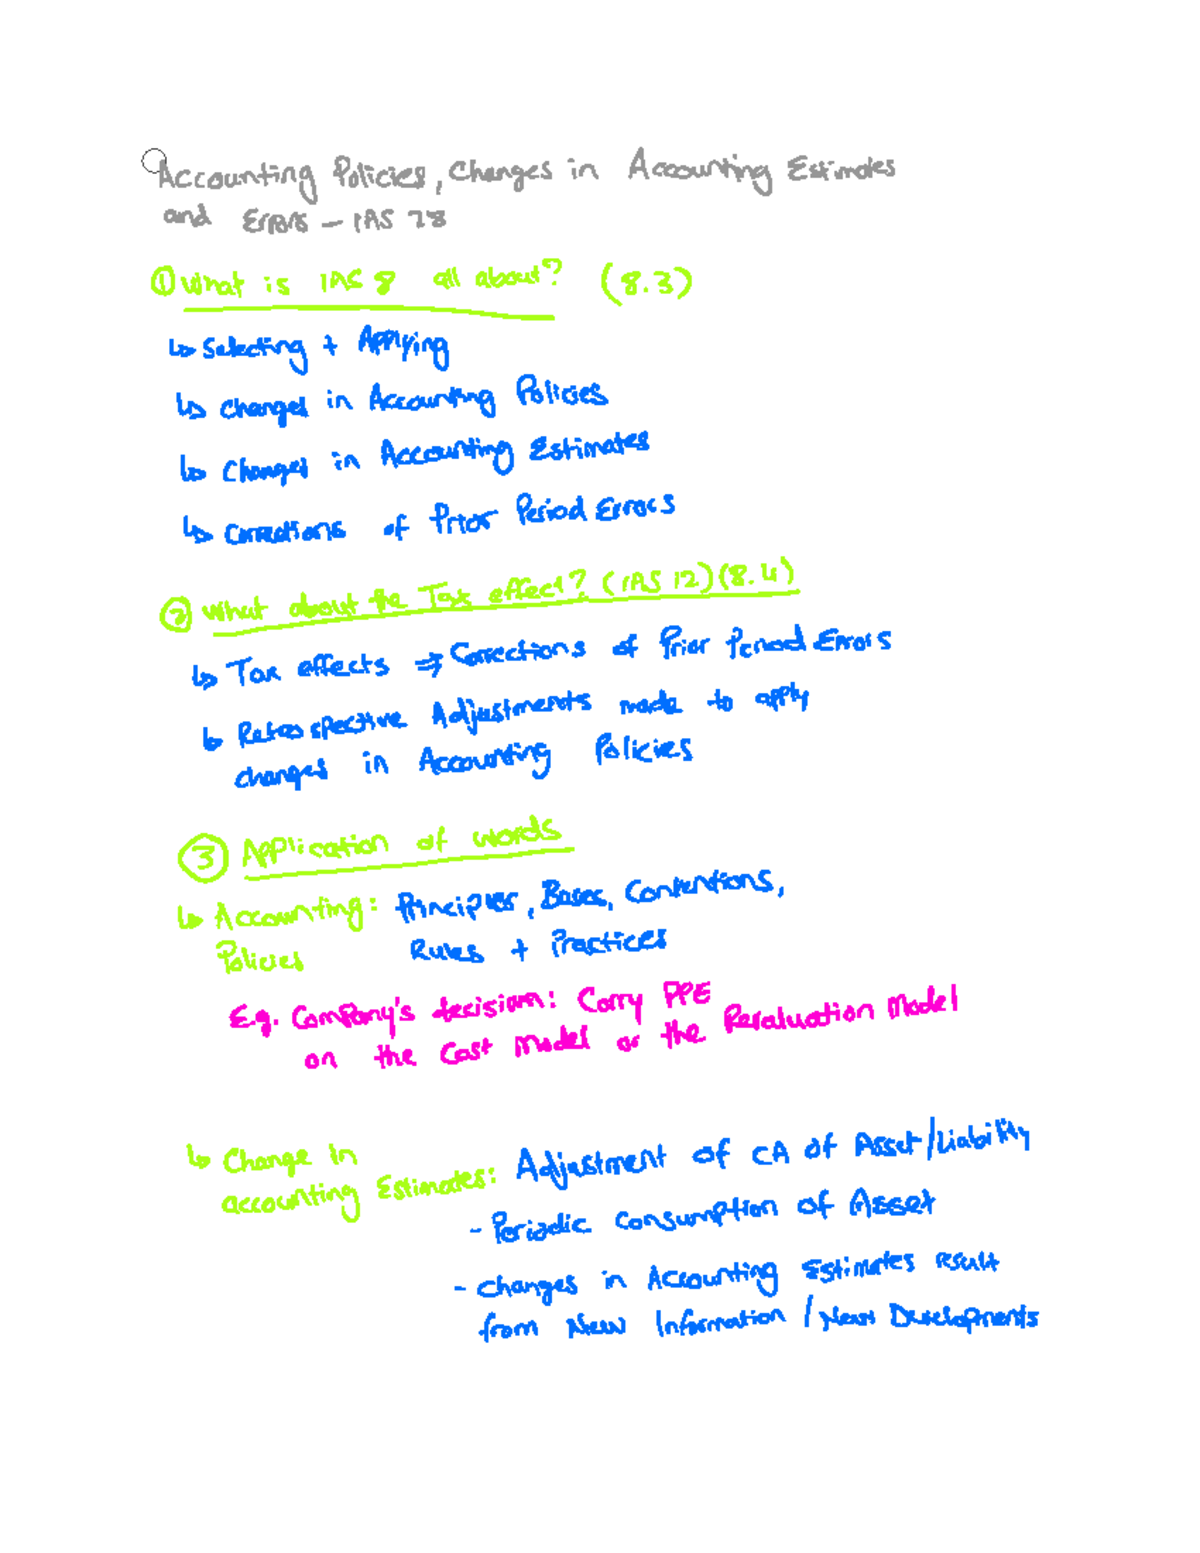 Accounting Policies, Changes in Accounting Estimates
and Errors – IAS 28
① What is IAS 8 all about? (8.3)
↳ Selecting + Applying
↳ Changes in Accounting Policies
↳ Changes in Accounting Estimates
↳ Corrections of Prior Period Errors
② What about the Tax effect? (IAS 12) (8.4)
↳ Tax effects ⇒ Corrections of Prior Period Errors
↳ Retrospective Adjustments made to apply
changes in Accounting Policies
③ Application of words
↳ Accounting: Principles, Bases, Conventions,
Policies Rules + Practices
E.g. Company's decision: Carry PPE
on the Cost Model or the Revaluation Model
↳ Change In
accounting Estimates: Adjustment of CA of Asset/Liability
- Periodic Consumption of Asset
- Changes in Accounting Estimates result
from New Information / New Developments